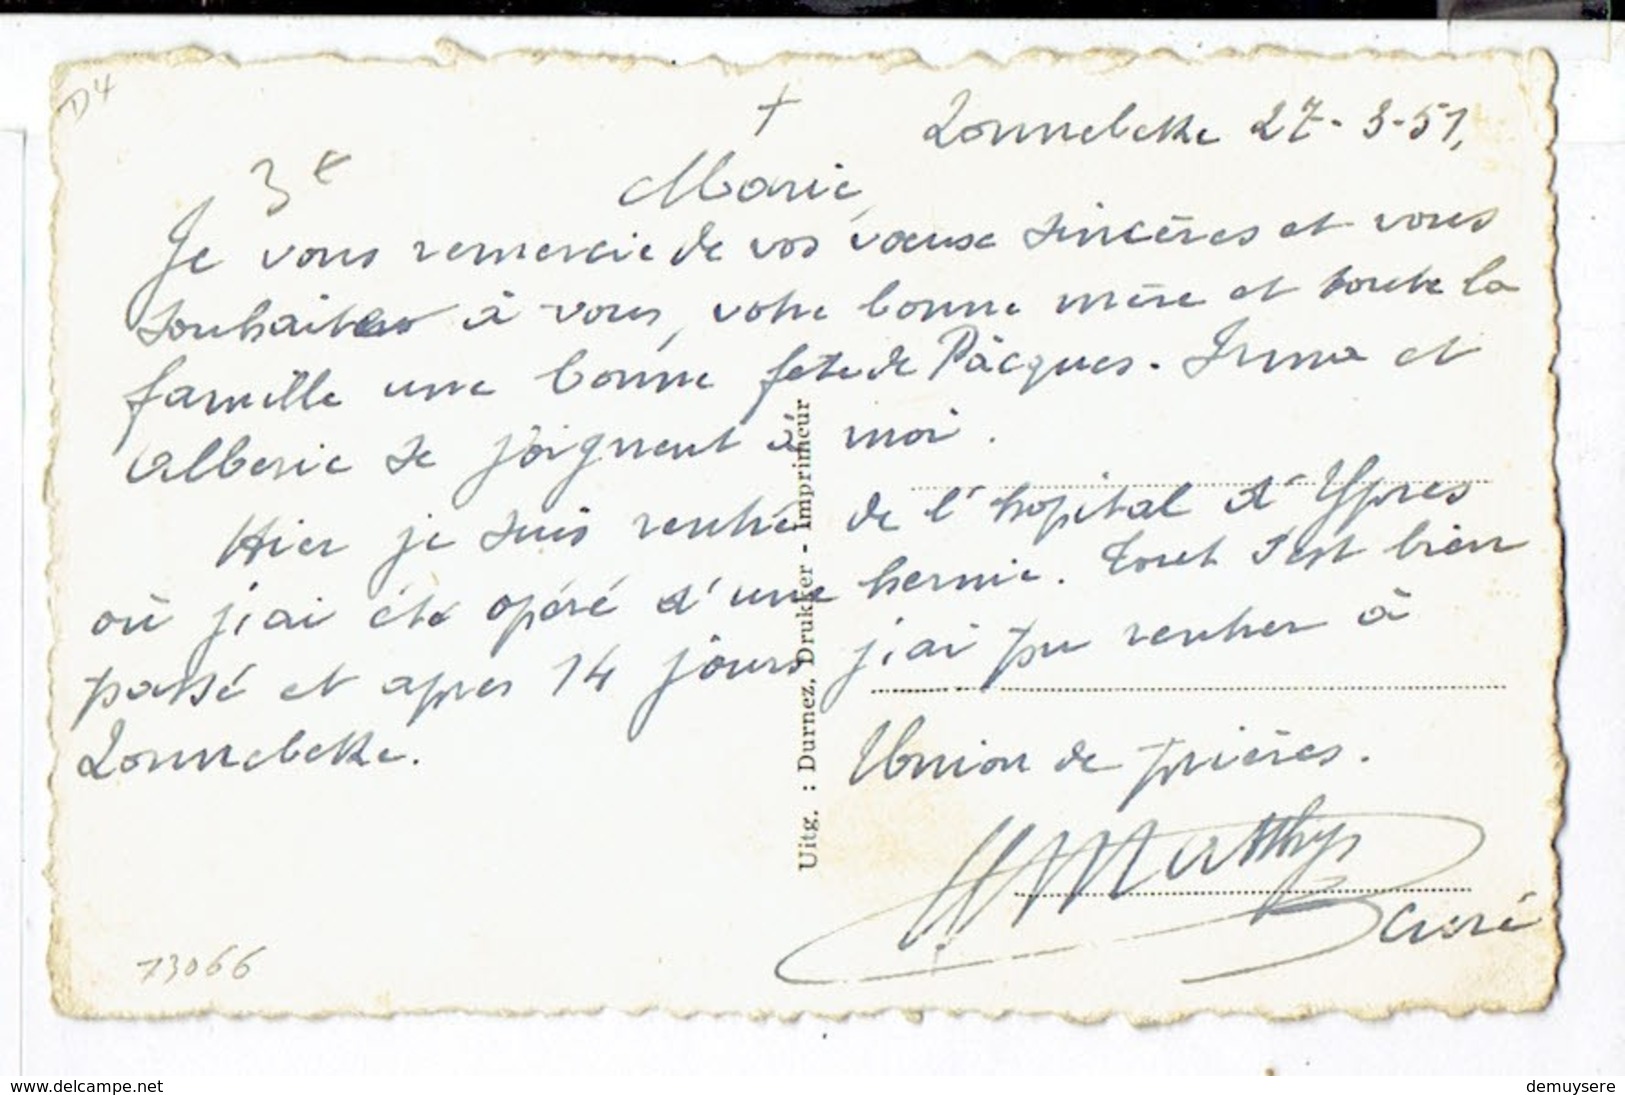 D4
+
Zonnebeke 27-3-51,
3€
Marie,
Je vous remercie de vos voeux sincères et vous
souhaites à vous, votre bonne mère et toute la
famille une bonne fete de Pâcques. Irma et
Alberic se joignent à moi.
Hier je suis rentré de l'hopital d'Ypres
où j'ai été opéré d'une hernie. Tout s'est bien
passé et apres 14 jours j'ai pu rentrer à
Zonnebeke.
Union de prières.
Matthys
Curé
73066
Uitg. : Durnez, Drukker - Imprimeur
www.delcampe.net
demuysere